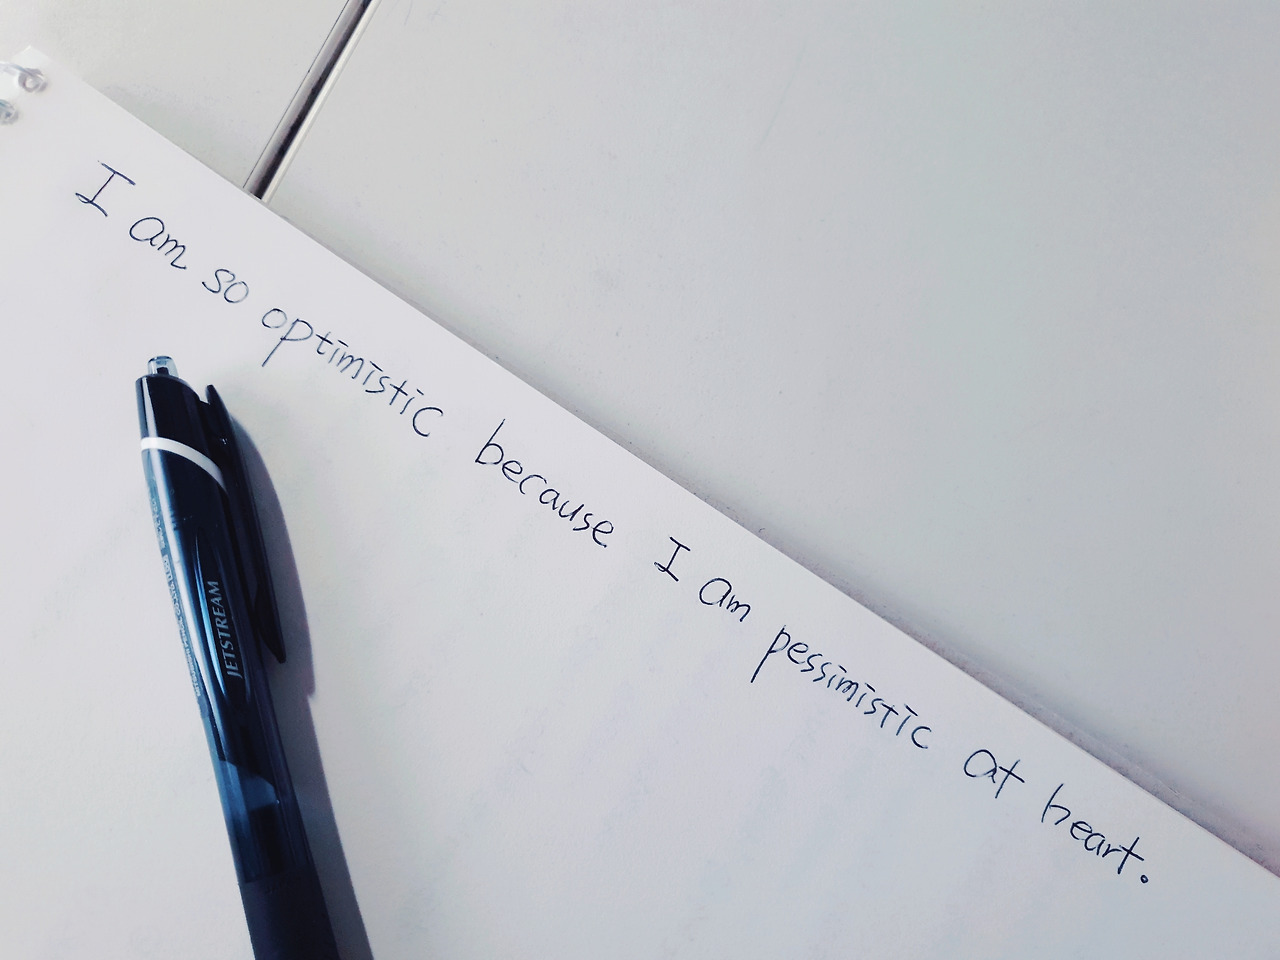 I am so optimistic because I am pessimistic at heart.
JETSTREAM